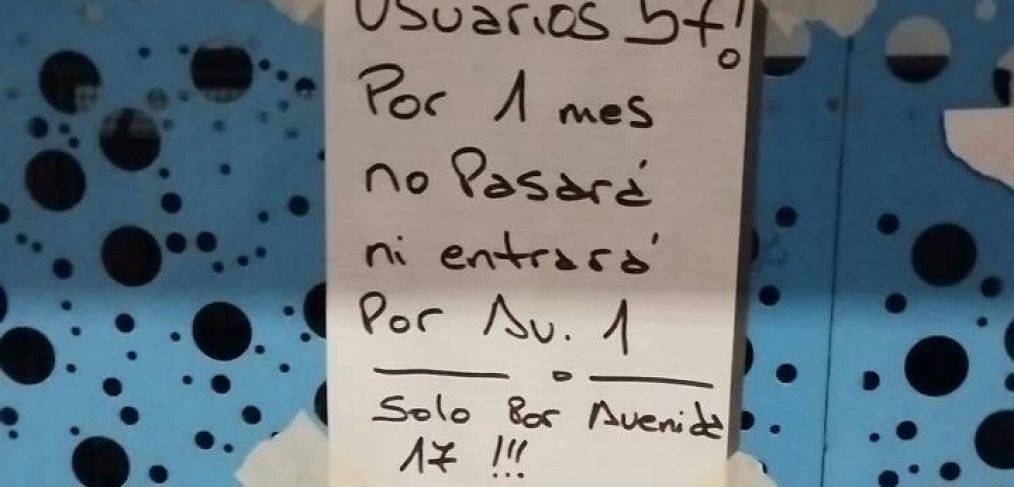 Usuarios 57!
Por 1 mes
no Pasará
ni entrará
Por Av. 1
Solo Por Avenida
17 !!!